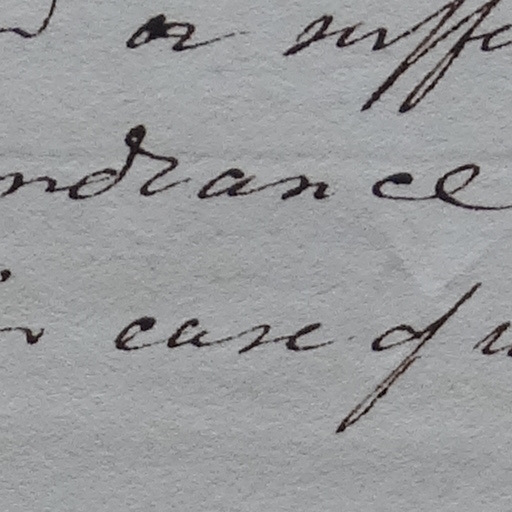 or suffe
ndrance
in case of